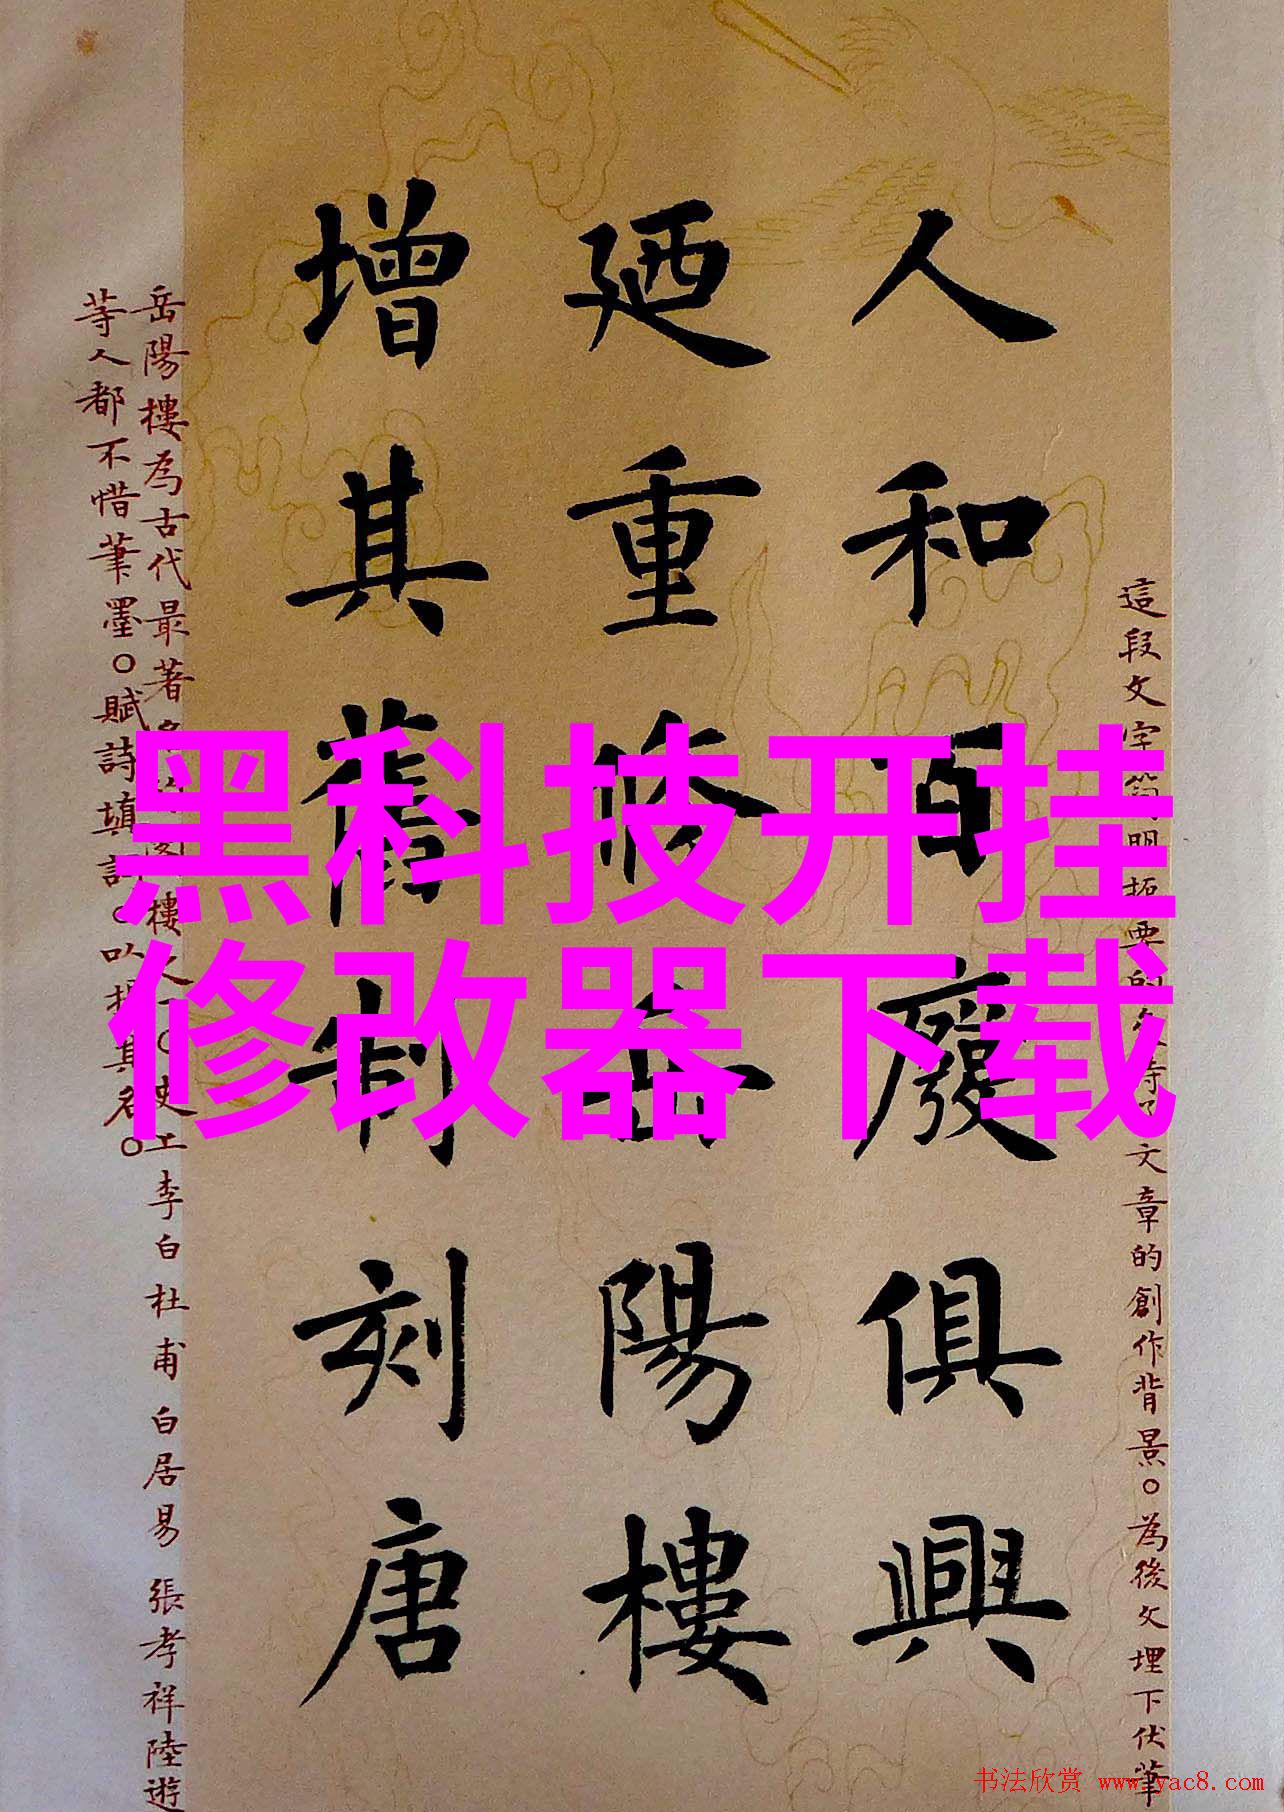 這段文字簡明扼要的交待了文章的創作背景。為後文埋下伏筆
人和百廢俱興
廼重修岳陽樓
增其舊制刻唐
岳陽樓為古代最著樓史上李白杜甫白居易張孝祥陸遊
等人都不惜筆墨。賦詩填詞。以揚其名。
黑科技开挂
修改器下载
书法欣赏 www.yac8.com